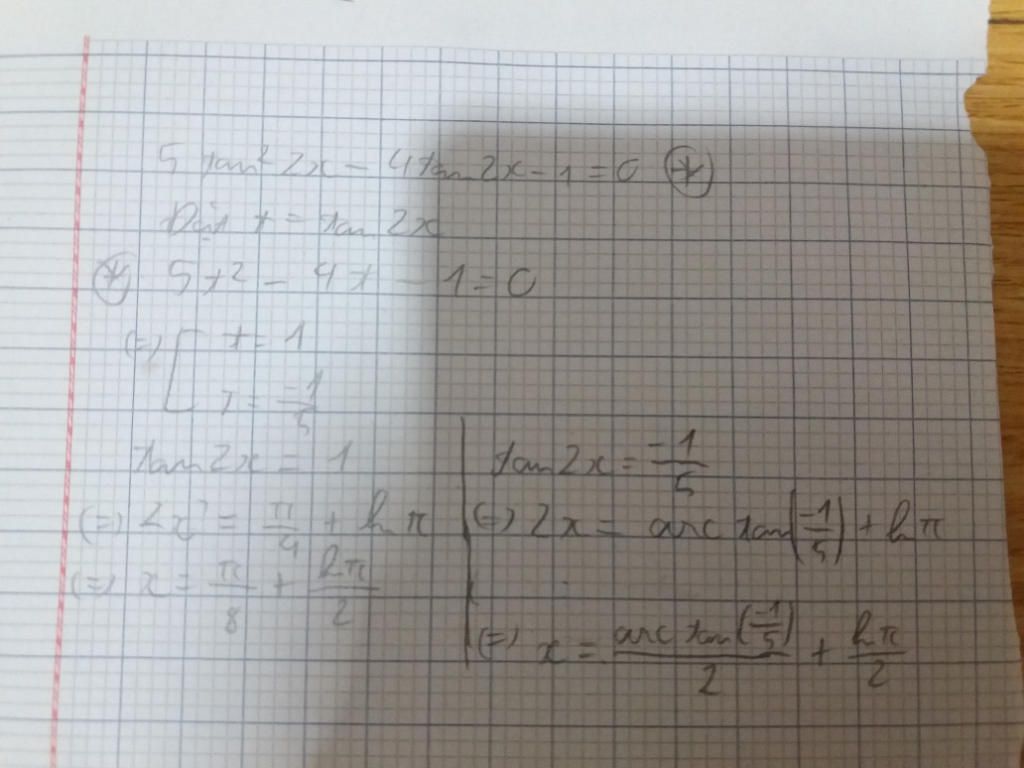 5 tan² 2x - 4 tan 2x - 1 = 0 (*)
Đặt t = tan 2x
(*) 5t² - 4t - 1 = 0
(=) [ t = 1
t = -1/5
tan 2x = 1
(=) 2x = π/4 + kπ
(=) x = π/8 + kπ/2
tan 2x = -1/5
(=) 2x = arc tan(-1/5) + kπ
(=) x = arc tan(-1/5)/2 + kπ/2